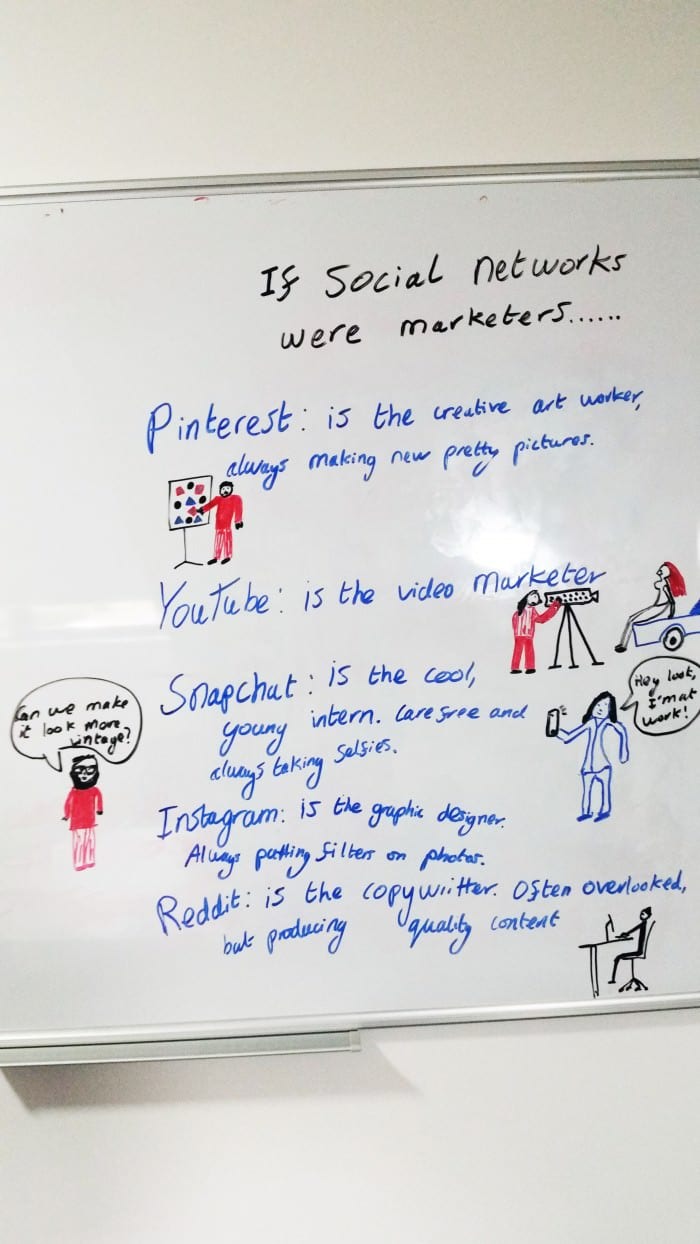 If Social networks
were marketers......
Pinterest: is the creative art worker,
always making new pretty pictures.
YouTube: is the video marketer
Snapchat: is the cool,
young intern. Carefree and
always taking selfies.
Hey look,
I'm at
work!
Can we make
it look more
vintage?
Instagram: is the graphic designer.
Always putting filters on photos.
Reddit: is the copywiitter. Often overlooked,
but producing quality content